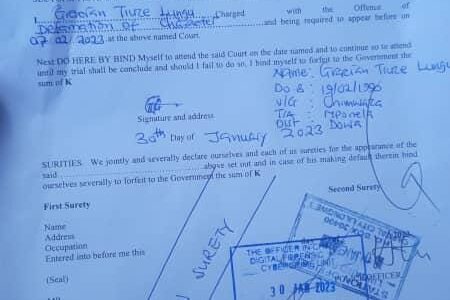 I, Gracian Tiuze Lungu Charged with the Offence of
Defamation of Character and being required to appear before on
07.02.2023 at the above named Court.
Next DO HERE BY BIND Myself to attend the said Court on the date named and to continue so to attend
until my trial shall be conclude and should I fail to do so, I bind myself to forfeit to the Government the
sum of K
Name: Gracian Tiuze Lungu
DoB: 19/02/1990
V/G: Chimwaza
T/A: Mponela
DIST: Dowa
Signature and address
30th Day of January 2023
SURITIES. We jointly and severally declare ourselves and each of us sureties for the appearance of the
said above set out and in case of his making default therein bind
ourselves severally to forfeit to the Government the sum of K
First Surety
Second Surety
Name
Address
Occupation
Entered into before me this
(Seal)
SURETY
THE OFFICER IN-CHARGE
DIGITAL FORENSIC
CYBERCRIME UNIT
30 JAN 2023
OFFICER